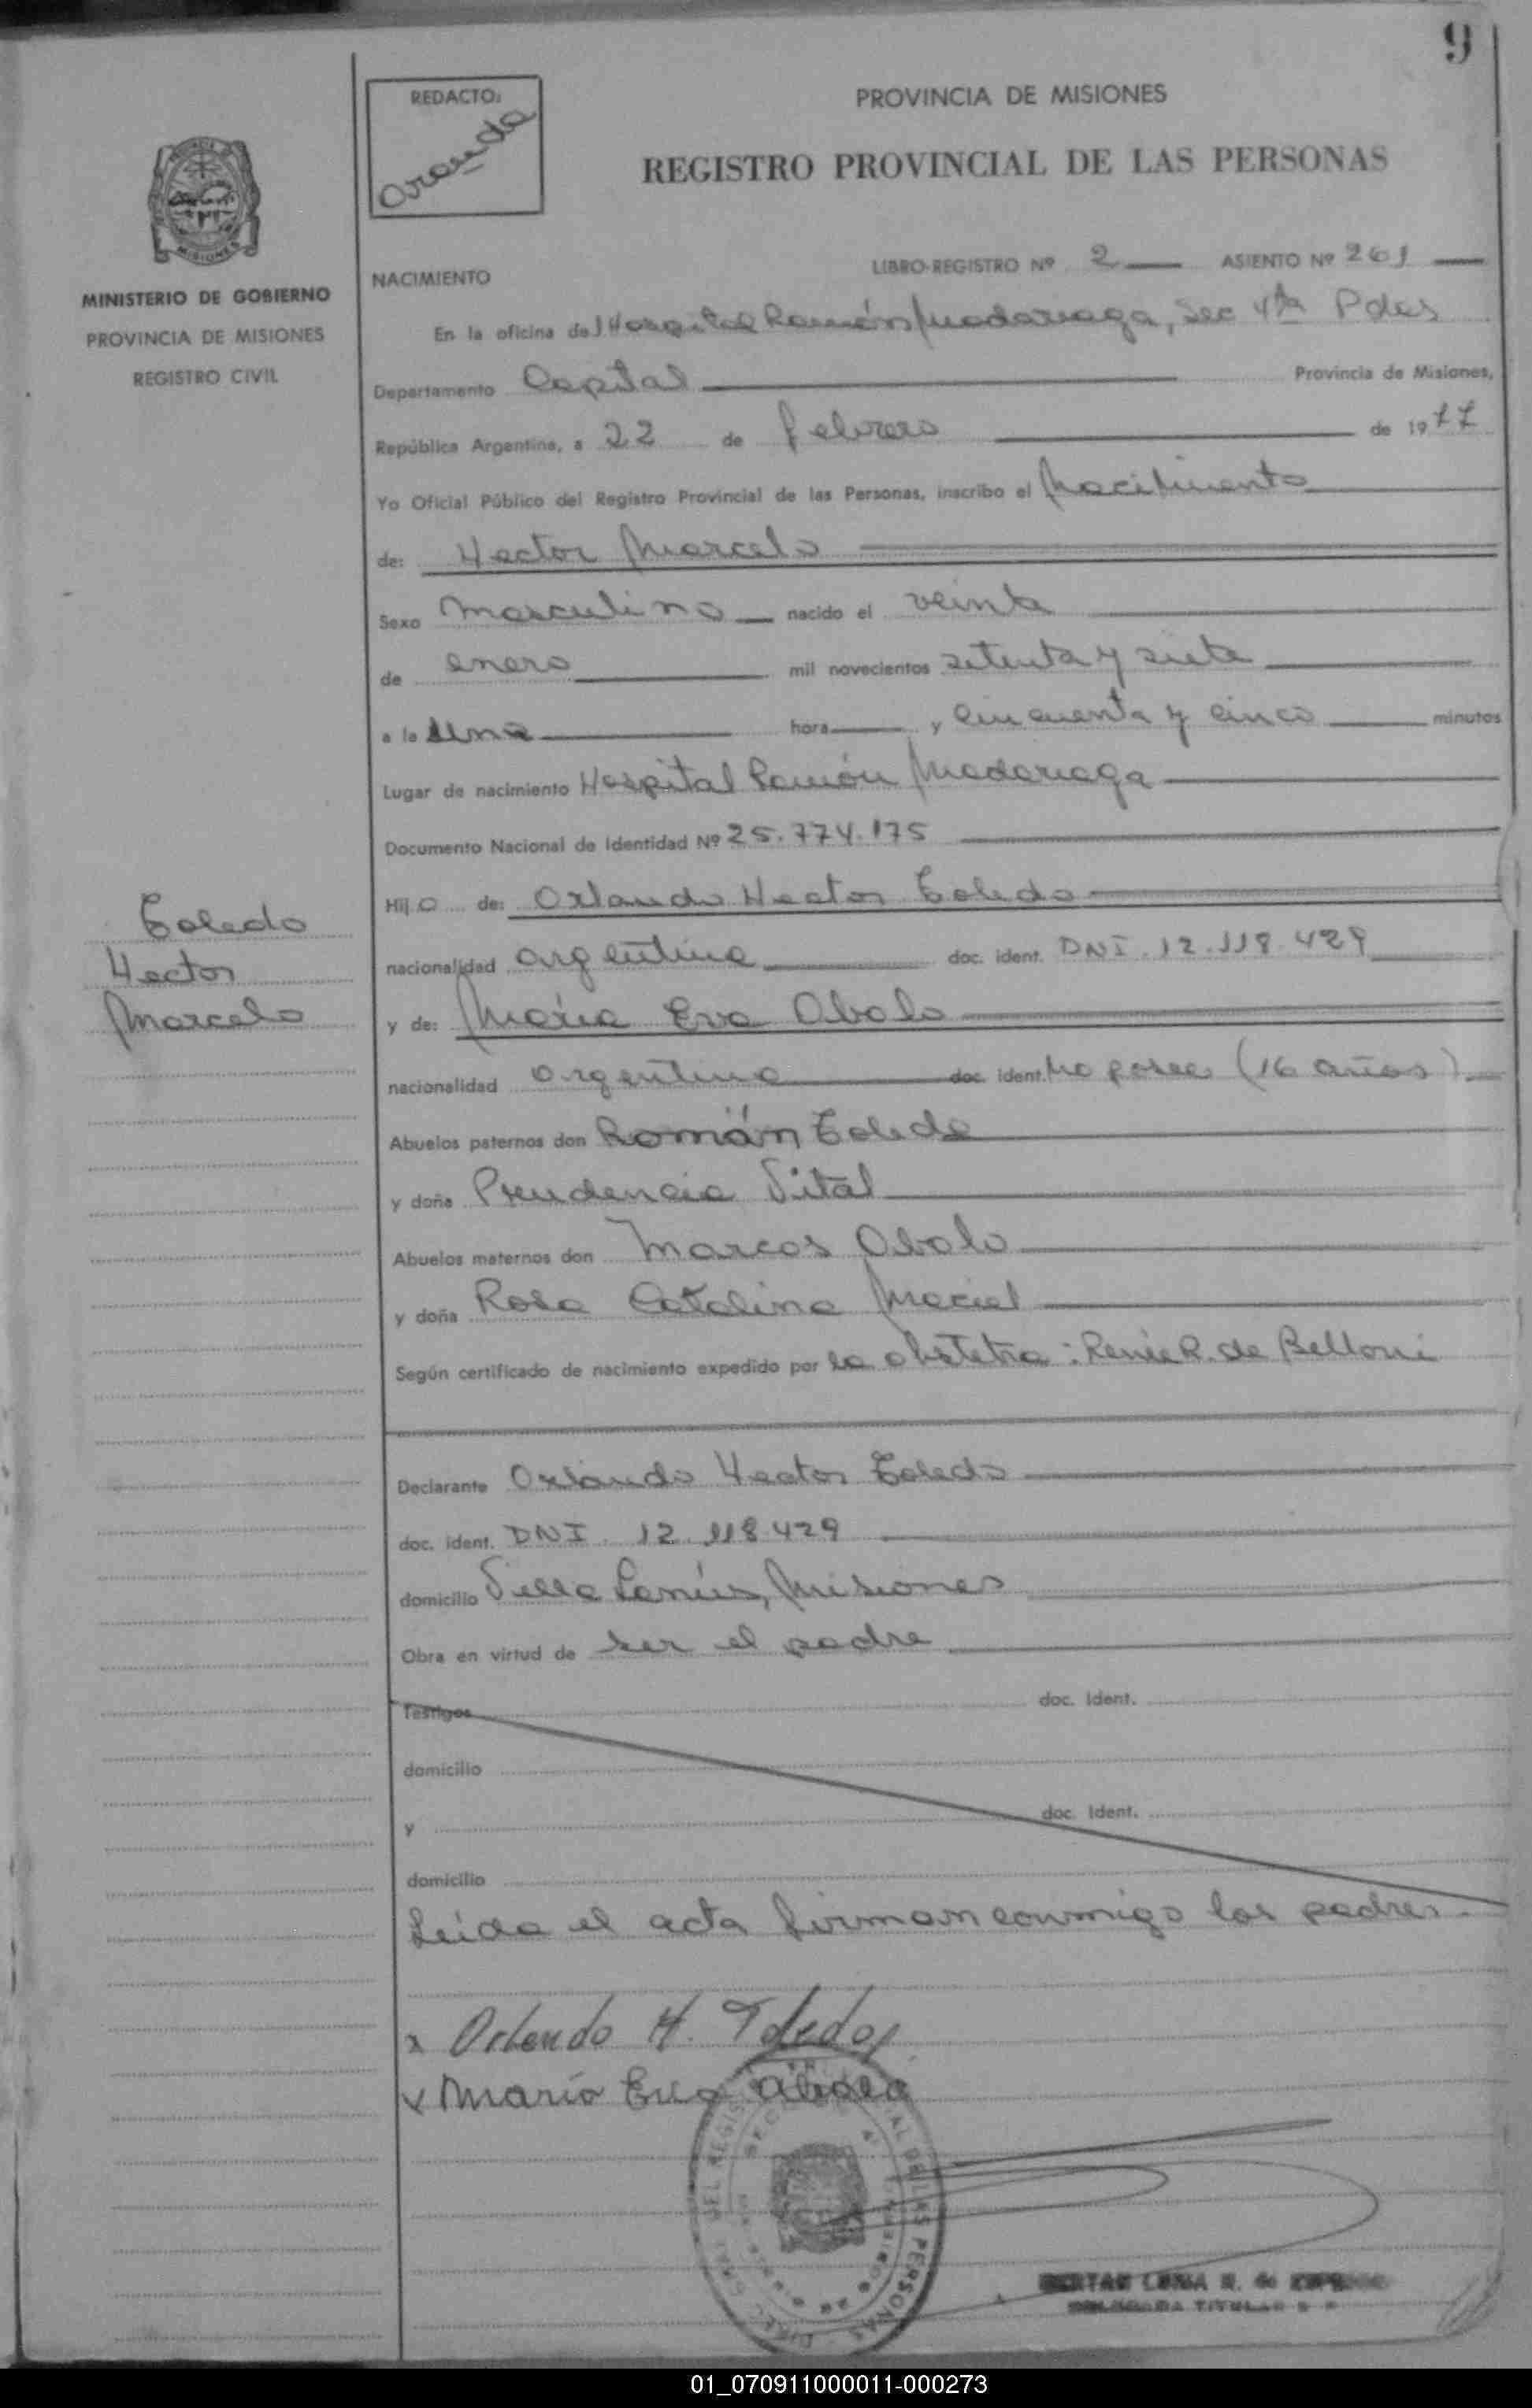 9
REDACTO:
Aranda
PROVINCIA DE MISIONES
REGISTRO PROVINCIAL DE LAS PERSONAS
MISIONES
MINISTERIO DE GOBIERNO
PROVINCIA DE MISIONES
REGISTRO CIVIL
NACIMIENTO
LIBRO-REGISTRO Nº 2 ASIENTO Nº 261
En la oficina del Hospital Ramón Madariaga, Sec 4ta Pdas
Departamento Capital Provincia de Misiones,
República Argentina, a 22 de febrero de 1977
Yo Oficial Público del Registro Provincial de las Personas, inscribo el Nacimiento
de: Hector Marcelo
Sexo Masculino nacido el veinte
de enero mil novecientos setenta y siete
a la una hora y cincuenta y cinco minutos
Lugar de nacimiento Hospital Ramón Madariaga
Documento Nacional de Identidad Nº 25.774.175
Hijo de: Orlando Hector Toledo
nacionalidad argentina doc. ident. DNI. 12.118.429
y de: María Eva Abalo
nacionalidad argentina doc. ident. No posee (16 años)
Abuelos paternos don Román Toledo
y doña Prudencia Vital
Abuelos maternos don Marcos Abalo
y doña Rosa Catalina Maciel
Según certificado de nacimiento expedido por la obstetra: Renée R. de Belloni
Toledo
Hector
Marcelo
Declarante Orlando Hector Toledo
doc. ident. DNI. 12.118.429
domicilio Villa Lanús, Misiones
Obra en virtud de ser el padre
Testigos doc. Ident.
domicilio
y doc. Ident.
domicilio
Leída el acta firman conmigo los padres.
x Orlando H. Toledo
x María Eva Abalo
DELEGADA TITULAR
01_070911000011-000273